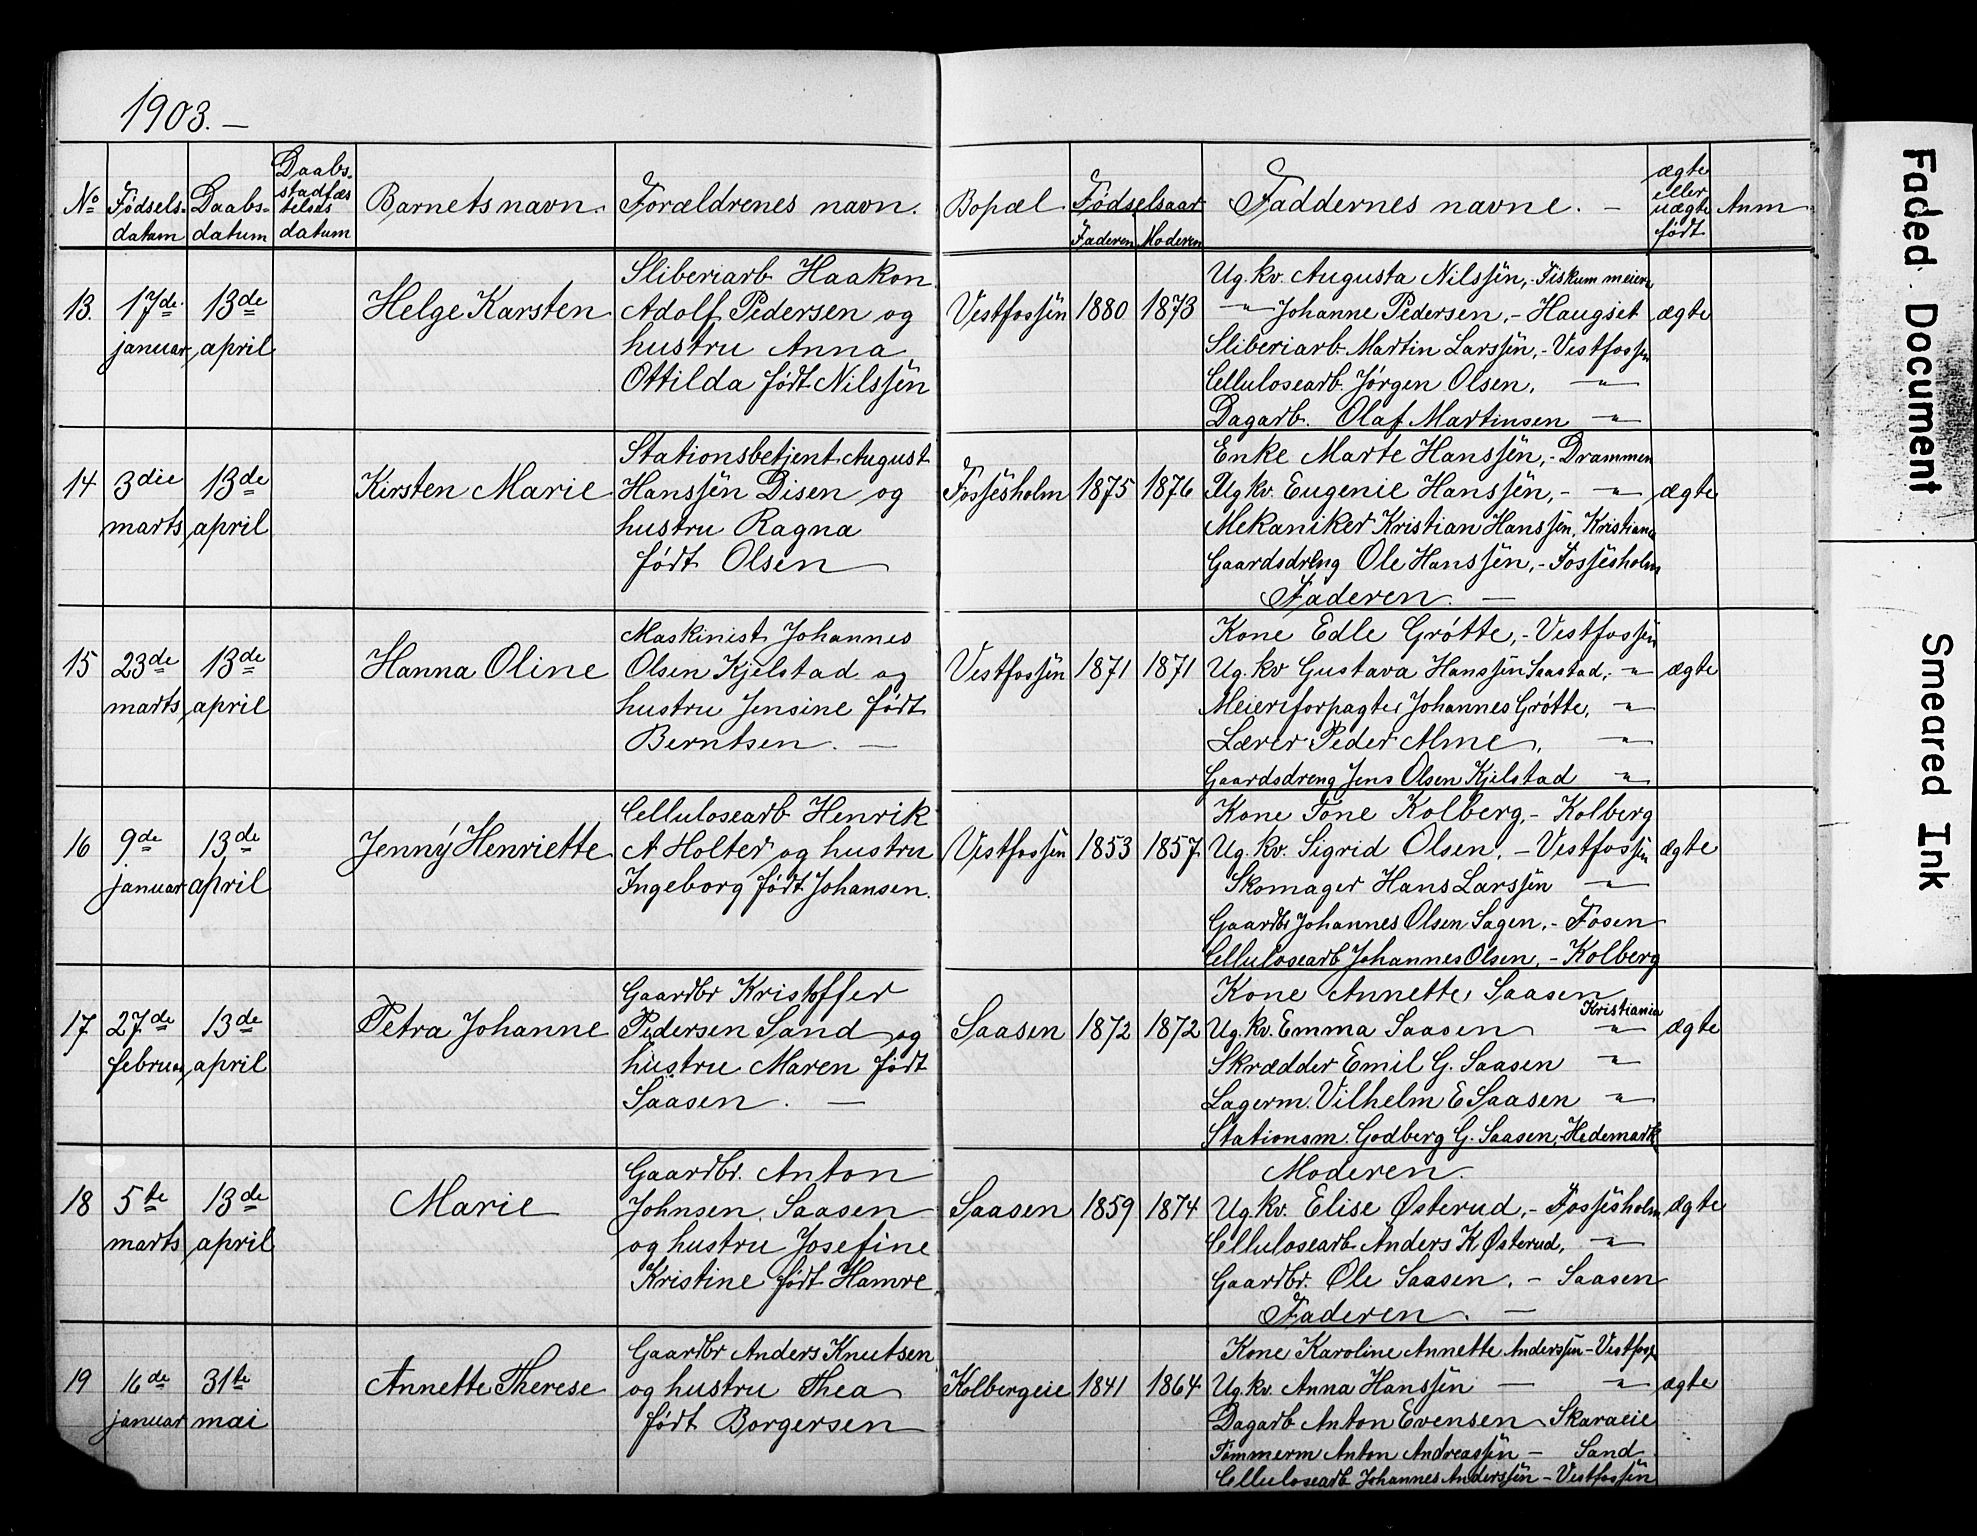 1903. —
No
Fødsels-
datum
Daabs-
datum
Daabs-
stadfæs
telses
datum
Barnets navn.
Forældrenes navn.
Bopæl
Fødselsaar
Faderen
Moderen
Faddernes navne. —
ægte
eller
uægte
født
Anm
13.
17de
januar
13de
april
Helge Karsten
Sliberiarb Haakon
Adolf Pedersen og
hustru Anna
Ottilda født Nilssen
Vestfossen
1880
1873
Ug. kv. Augusta Nilssen,- Fiskum meieri
—"— Johanne Pedersen,- Haugset
Sliberiarb Martin Larssen,- Vestfossen
Cellulosearb. Jørgen Olsen, —"—
Dagarb. Olaf Martinsen —"—
ægte
14
3die
marts
13de
april
Kirsten Marie
Stationsbetjent August
Hanssen Disen og
hustru Ragna
født Olsen —
Fossesholm
1875
1876
Enke Marte Hanssen,- Drammen
Ug kv. Eugenie Hanssen,- —"—
Mekaniker Kristian Hanssen, Kristiania
Gaardsdreng Ole Hanssen,- Fossesholm
Faderen. —
ægte
15
23de
marts
13de
april
Hanna Oline
Maskinist Johannes
Olsen Kjelstad og
hustru Jensine født
Berntsen. —
Vestfossen
1871
1871
Kone Edle Grøtte,- Vestfossen
Ug. kv Gustava Hanssen Saastad,- "
Meieriforpagter Johannes Grøtte, —"—
Lærer Peder Alme, —"—
Gaardsdreng Jens Olsen Kjelstad —"—
ægte
16
9de
januar
13de
april
Jenny Henriette
Cellulosearb Henrik
A Holter og hustru
Ingeborg født Johansen.
Vestfossen
1853
1857
Kone Tone Kolberg,- Kolberg
Ug. kv. Sigrid Olsen, - Vestfossen
Skomager Hans Larssen —"—
Gaardbr Johannes Olsen Sagen,- Fosen
Cellulosearb Johannes Olsen,- Kolberg
ægte
17
27de
februar
13de
april
Petra Johanne
Gaardbr Kristoffer
Pedersen Sand og
hustru Maren født
Saasen. —
Saasen
1872
1872
Kone Annette Saasen Kristiania
Ug. kv. Emma Saasen —"—
Skrædder Emil G. Saasen —"—
Lagerm. Vilhelm E Saasen —"—
Stationsm. Godberg G. Saasen,- Hedemark
ægte
18
5te
marts
13de
april
Marie
Gaardbr. Anton
Johnsen Saasen
og hustru Josefine
Kristine født Hamre
Saasen
1859
1874
Moderen.
Ug. kv. Elise Østerud,- Fossesholm
Cellulosearb Anders K Østerud, —"—
Gaardbr. Ole Saasen, - Saasen
Faderen. —
ægte
19
16de
januar
31te
mai
Annette Therese
Gaardbr Anders Knutsen
og hustru Thea
født Borgersen
Kolbergeie
1841
1864
Kone Karoline Annette Anderssen - Vestfoss
Ug. kv. Anna Hanssen — —"—
Dagarb Anton Evensen Skaraeie
Tømmerm Anton Andreassen - Sand
Cellulosearb Johannes Anderssen - Vestfossen
ægte
Faded Document
Smeared Ink